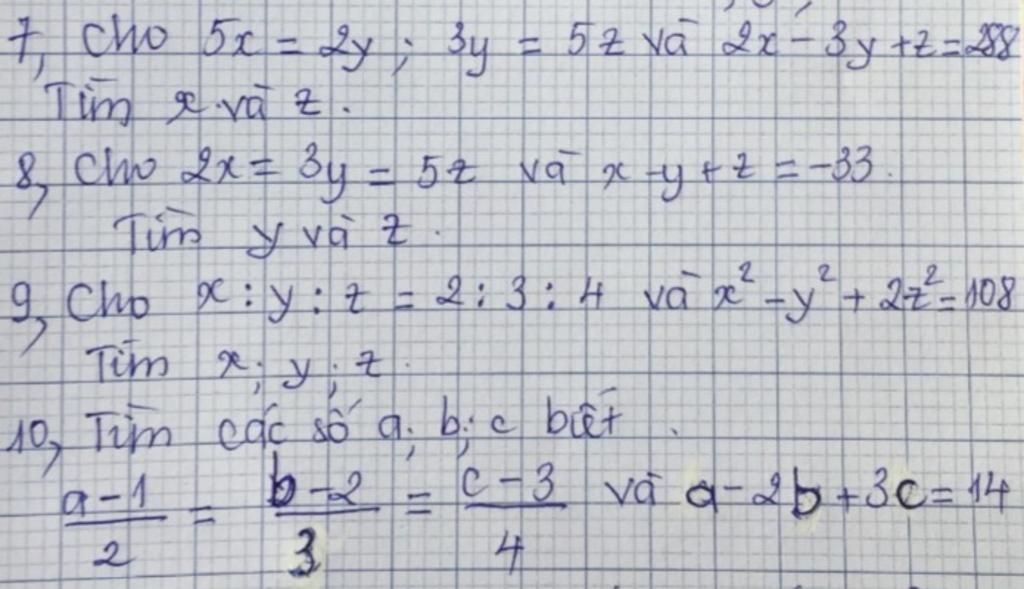 7, Cho 5x = 2y ; 3y = 5z và 2x - 3y + z = 288
Tìm x và z.
8, Cho 2x = 3y = 5z và x - y + z = -33.
Tìm y và z.
9, Cho x : y : z = 2 : 3 : 4 và x² - y² + 2z² = 108
Tìm x; y; z.
10, Tìm các số a; b; c biết.
a - 1 / 2 = b - 2 / 3 = c - 3 / 4 và a - 2b + 3c = 14